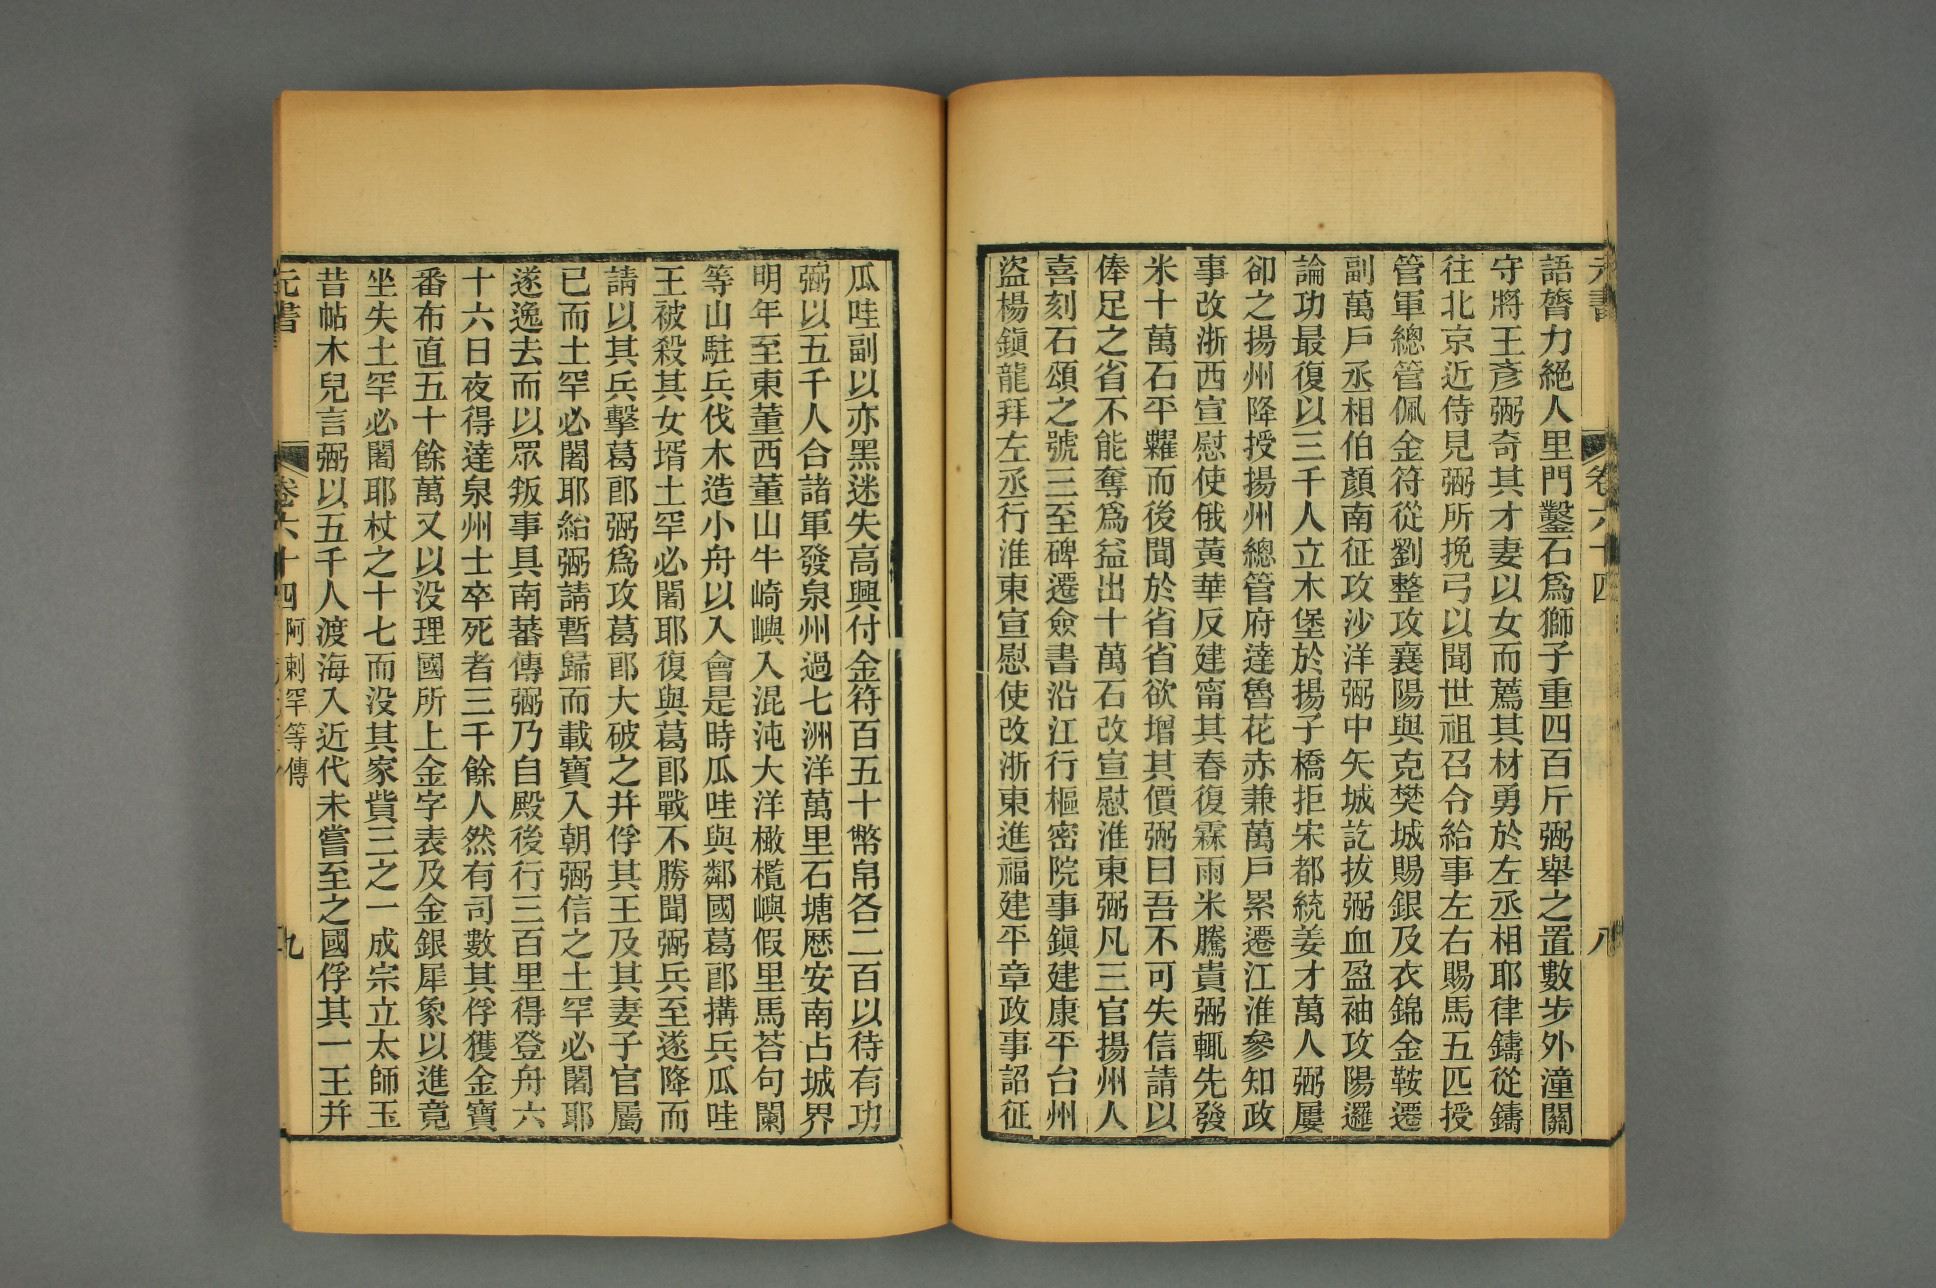 元書 卷六十四 八
語膂力絕人里門鑿石爲獅子重四百斤弼舉之置數步外潼關
守將王彥弼奇其才妻以女而薦其材勇於左丞相耶律鑄從鑄
往北京近侍見弼所挽弓以聞世祖召令給事左右賜馬五匹授
管軍總管佩金符從劉整攻襄陽與克樊城賜銀及衣錦金鞍遷
副萬戶丞相伯顏南征攻沙洋弼中矢城訖拔弼血盈袖攻陽邏
論功最復以三千人立木堡於揚子橋拒宋都統姜才萬人弼屢
卻之揚州降授揚州總管府達魯花赤兼萬戶累遷江淮參知政
事改浙西宣慰使俄黃華反建甯其春復霖雨米騰貴弼輒先發
米十萬石平糶而後聞於省省欲增其價弼曰吾不可失信請以
俸足之省不能奪爲益出十萬石改宣慰淮東弼凡三官揚州人
喜刻石頌之號三至碑遷僉書沿江行樞密院事鎭建康平台州
盜楊鎭龍拜左丞行淮東宣慰使改浙東進福建平章政事詔征
瓜哇副以亦黑迷失高興付金符百五十幣帛各二百以待有功
弼以五千人合諸軍發泉州過七洲洋萬里石塘歷安南占城界
明年至東董西董山牛崎嶼入混沌大洋橄欖嶼假里馬荅句闌
等山駐兵伐木造小舟以入會是時瓜哇與鄰國葛郎搆兵瓜哇
王被殺其女壻土罕必闍耶復與葛郎戰不勝聞弼兵至遂降而
請以其兵擊葛郎弼爲攻葛郎大破之并俘其王及其妻子官屬
已而土罕必闍耶紿弼請暫歸而載寶入朝弼信之土罕必闍耶
遂逸去而以眾叛事具南蕃傳弼乃自殿後行三百里得登舟六
十六日夜得達泉州士卒死者三千餘人然有司數其俘獲金寶
番布直五十餘萬又以没理國所上金字表及金銀犀象以進竟
坐失土罕必闍耶杖之十七而没其家貲三之一成宗立太師玉
昔帖木兒言弼以五千人渡海入近代未嘗至之國俘其一王并
元書 卷六十四 阿剌罕等傳 九